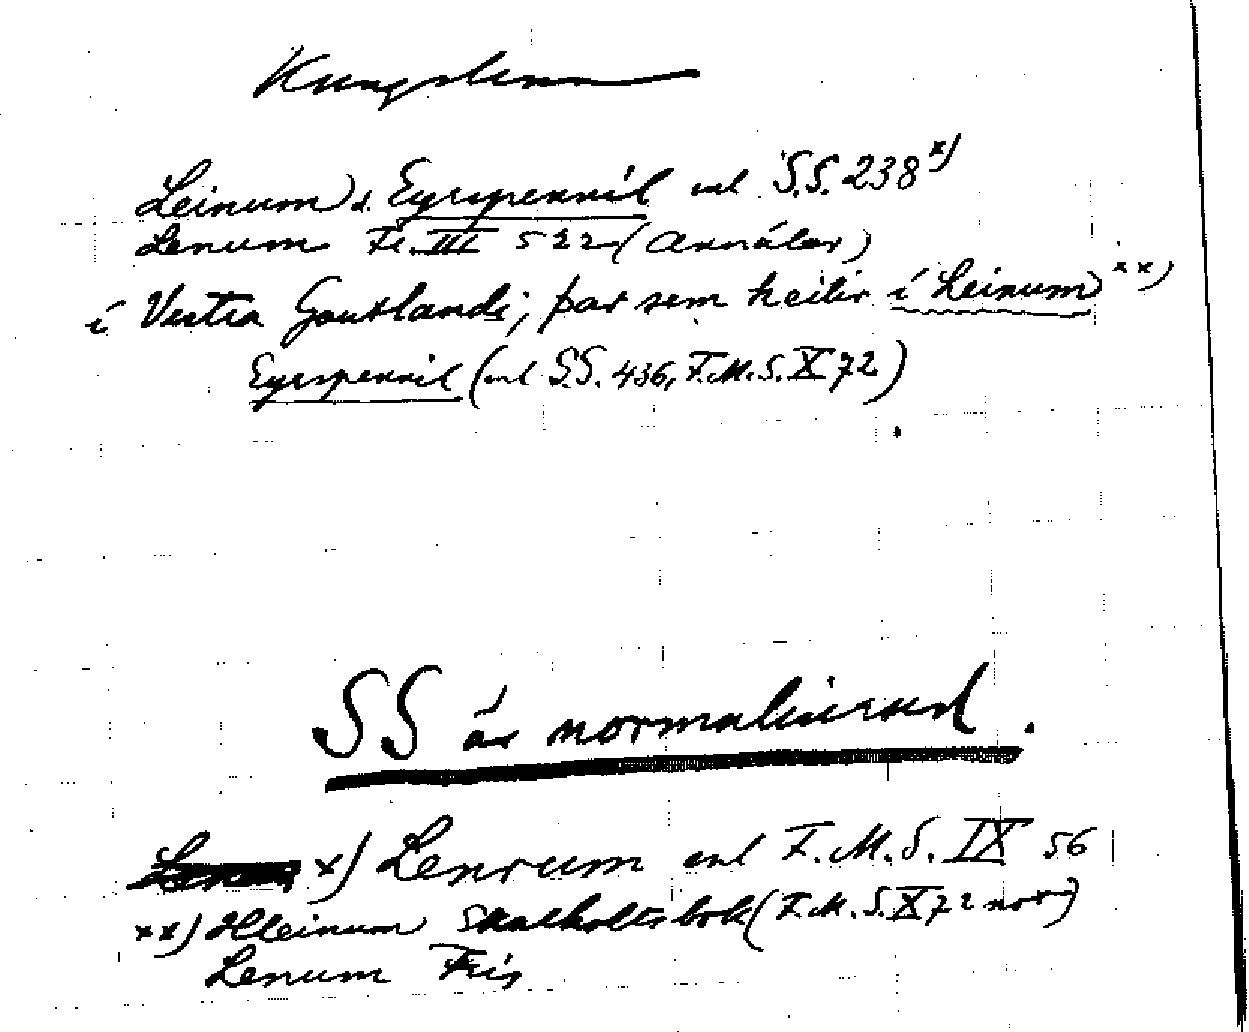 Kungslena
Leinum) s. Eyrspennil enl S.S. 238 x)
Lenum Fr. III 522 (Annáler)
í Vestra Gautlandi; þar sem heitir í Leinum xx)
Eyrspennil (enl S.S. 436, F.M.S. X 72)
SS är normaliserad.
x) Lenrum enl F.M.S. IX 56
xx) Hleinum Skalholtsbok (F.M.S. X 72 not)
Lenum Fris